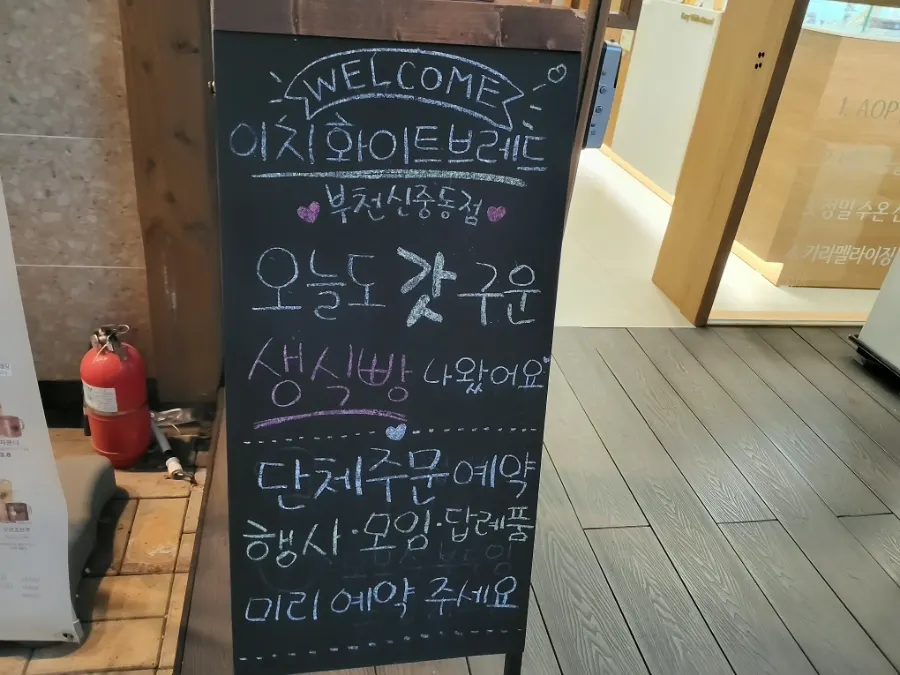 WELCOME
이치화이트브레드
부천신중동점
오늘도 갓 구운
생식빵 나왔어요
단체주문 예약
행사·모임·답례품
미리 예약 주세요
1. AOP
정밀 수온
카라멜라이징